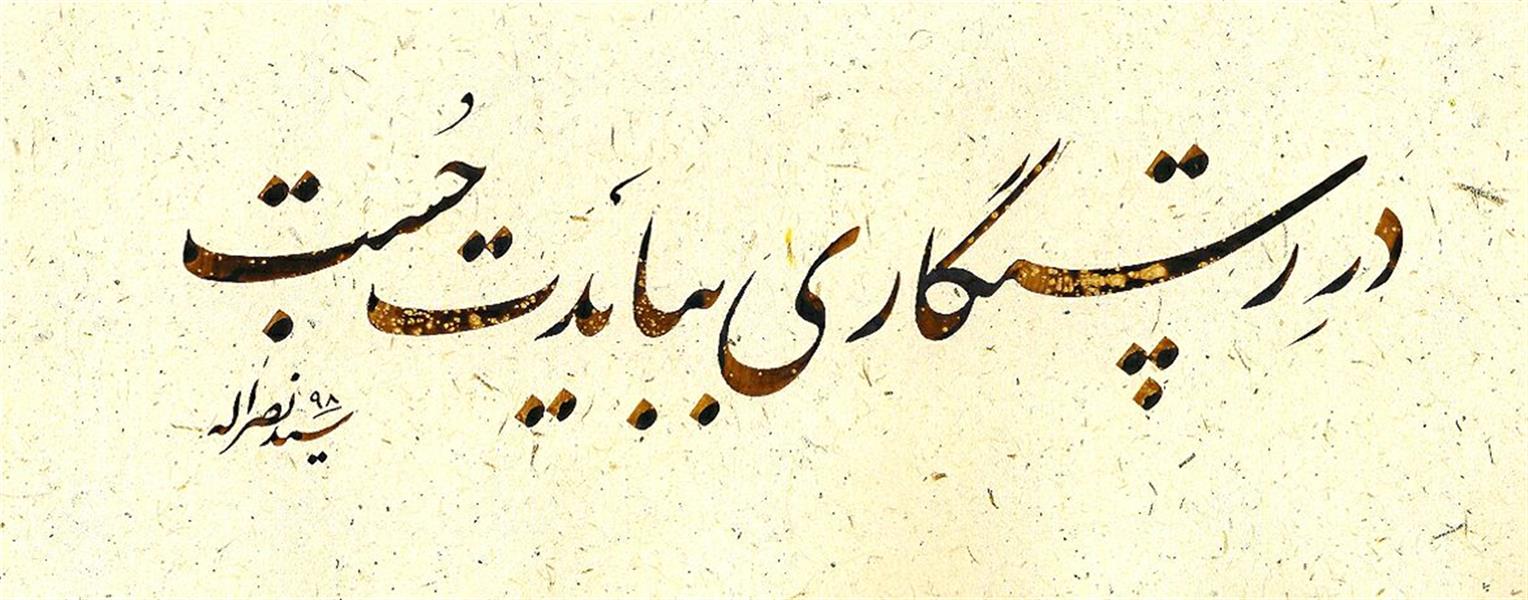 درِ رستگاری ببایَدت جُست
سید نصراله ۹۸